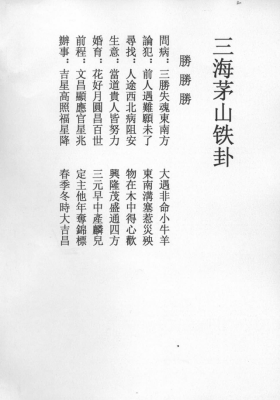 三海茅山铁卦
勝勝勝
問病：三勝失魂東南方　大遇非命小牛羊
論犯：前人遇難願未了　東南溝塞惹災殃
尋找：人途西北病阻安　物在木中得心歡
生意：當道貴人皆努力　興隆茂盛通四方
婚育：花好月圓昌百世　三元早中產麟兒
前程：文昌顯應官星兆　定主他年奪錦標
辦事：吉星高照福星降　春季冬時大吉昌